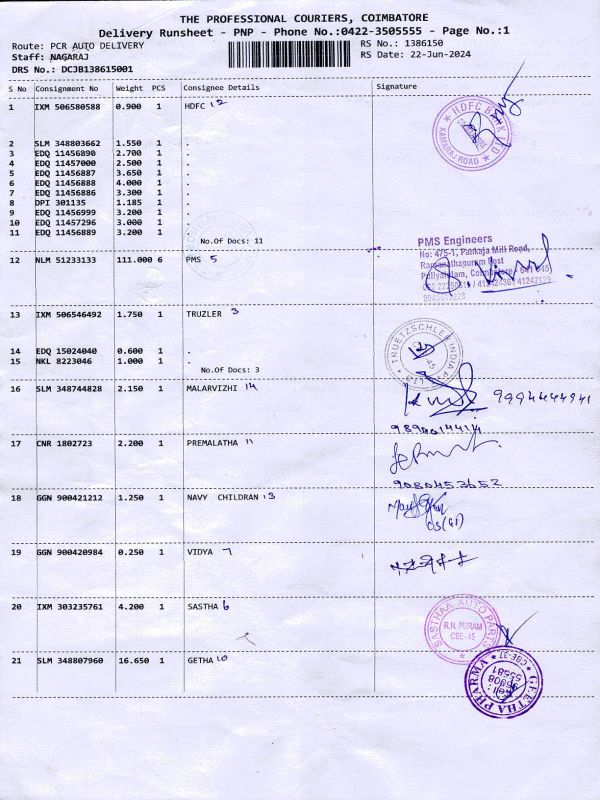 THE PROFESSIONAL COURIERS, COIMBATORE
Delivery Runsheet - PNP - Phone No.:0422-3505555 - Page No.:1
Route: PCR AUTO DELIVERY RS No.: 1386150
Staff: NAGARAJ RS Date: 22-Jun-2024
DRS No.: DCJB138615001
S No Consignment No Weight PCS Consignee Details Signature
1 IXM 506580588 0.900 1 HDFC 12
HDFC BANK LTD
KAMARAJ ROAD
2 SLM 348803662 1.550 1 .
3 EDQ 11456890 2.700 1 .
4 EDQ 11457000 2.500 1 .
5 EDQ 11456887 3.650 1 .
6 EDQ 11456888 4.000 1 .
7 EDQ 11456886 3.300 1 .
8 DPI 301135 1.185 1 .
9 EDQ 11456999 3.200 1 .
10 EDQ 11457296 3.000 1 .
11 EDQ 11456889 3.200 1 .
No.Of Docs: 11
12 NLM 51233133 111.000 6 PMS 5
PMS Engineers
No: 475-1, Pankaja Mill Road,
Ramanathapuram Post
Puliyakulam, Coimbatore - 641 045
13 IXM 506546492 1.750 1 TRUZLER 3
TRUETZSCHLER INDIA
14 EDQ 15024040 0.600 1 .
15 NKL 8223046 1.000 1 .
No.Of Docs: 3
16 SLM 348744828 2.150 1 MALARVIZHI 14
9994444941
17 CNR 1802723 2.200 1 PREMALATHA 11
9080453652
18 GGN 900421212 1.250 1 NAVY CHILDRAN 13
19 GGN 900420984 0.250 1 VIDYA 7
20 IXM 303235761 4.200 1 SASTHA 6
SASTHAA AUTO PARTS
R.N. PURAM
CBE-45
21 SLM 348807960 16.650 1 GETHA 10
GEETHA PHARMA
CBE-37